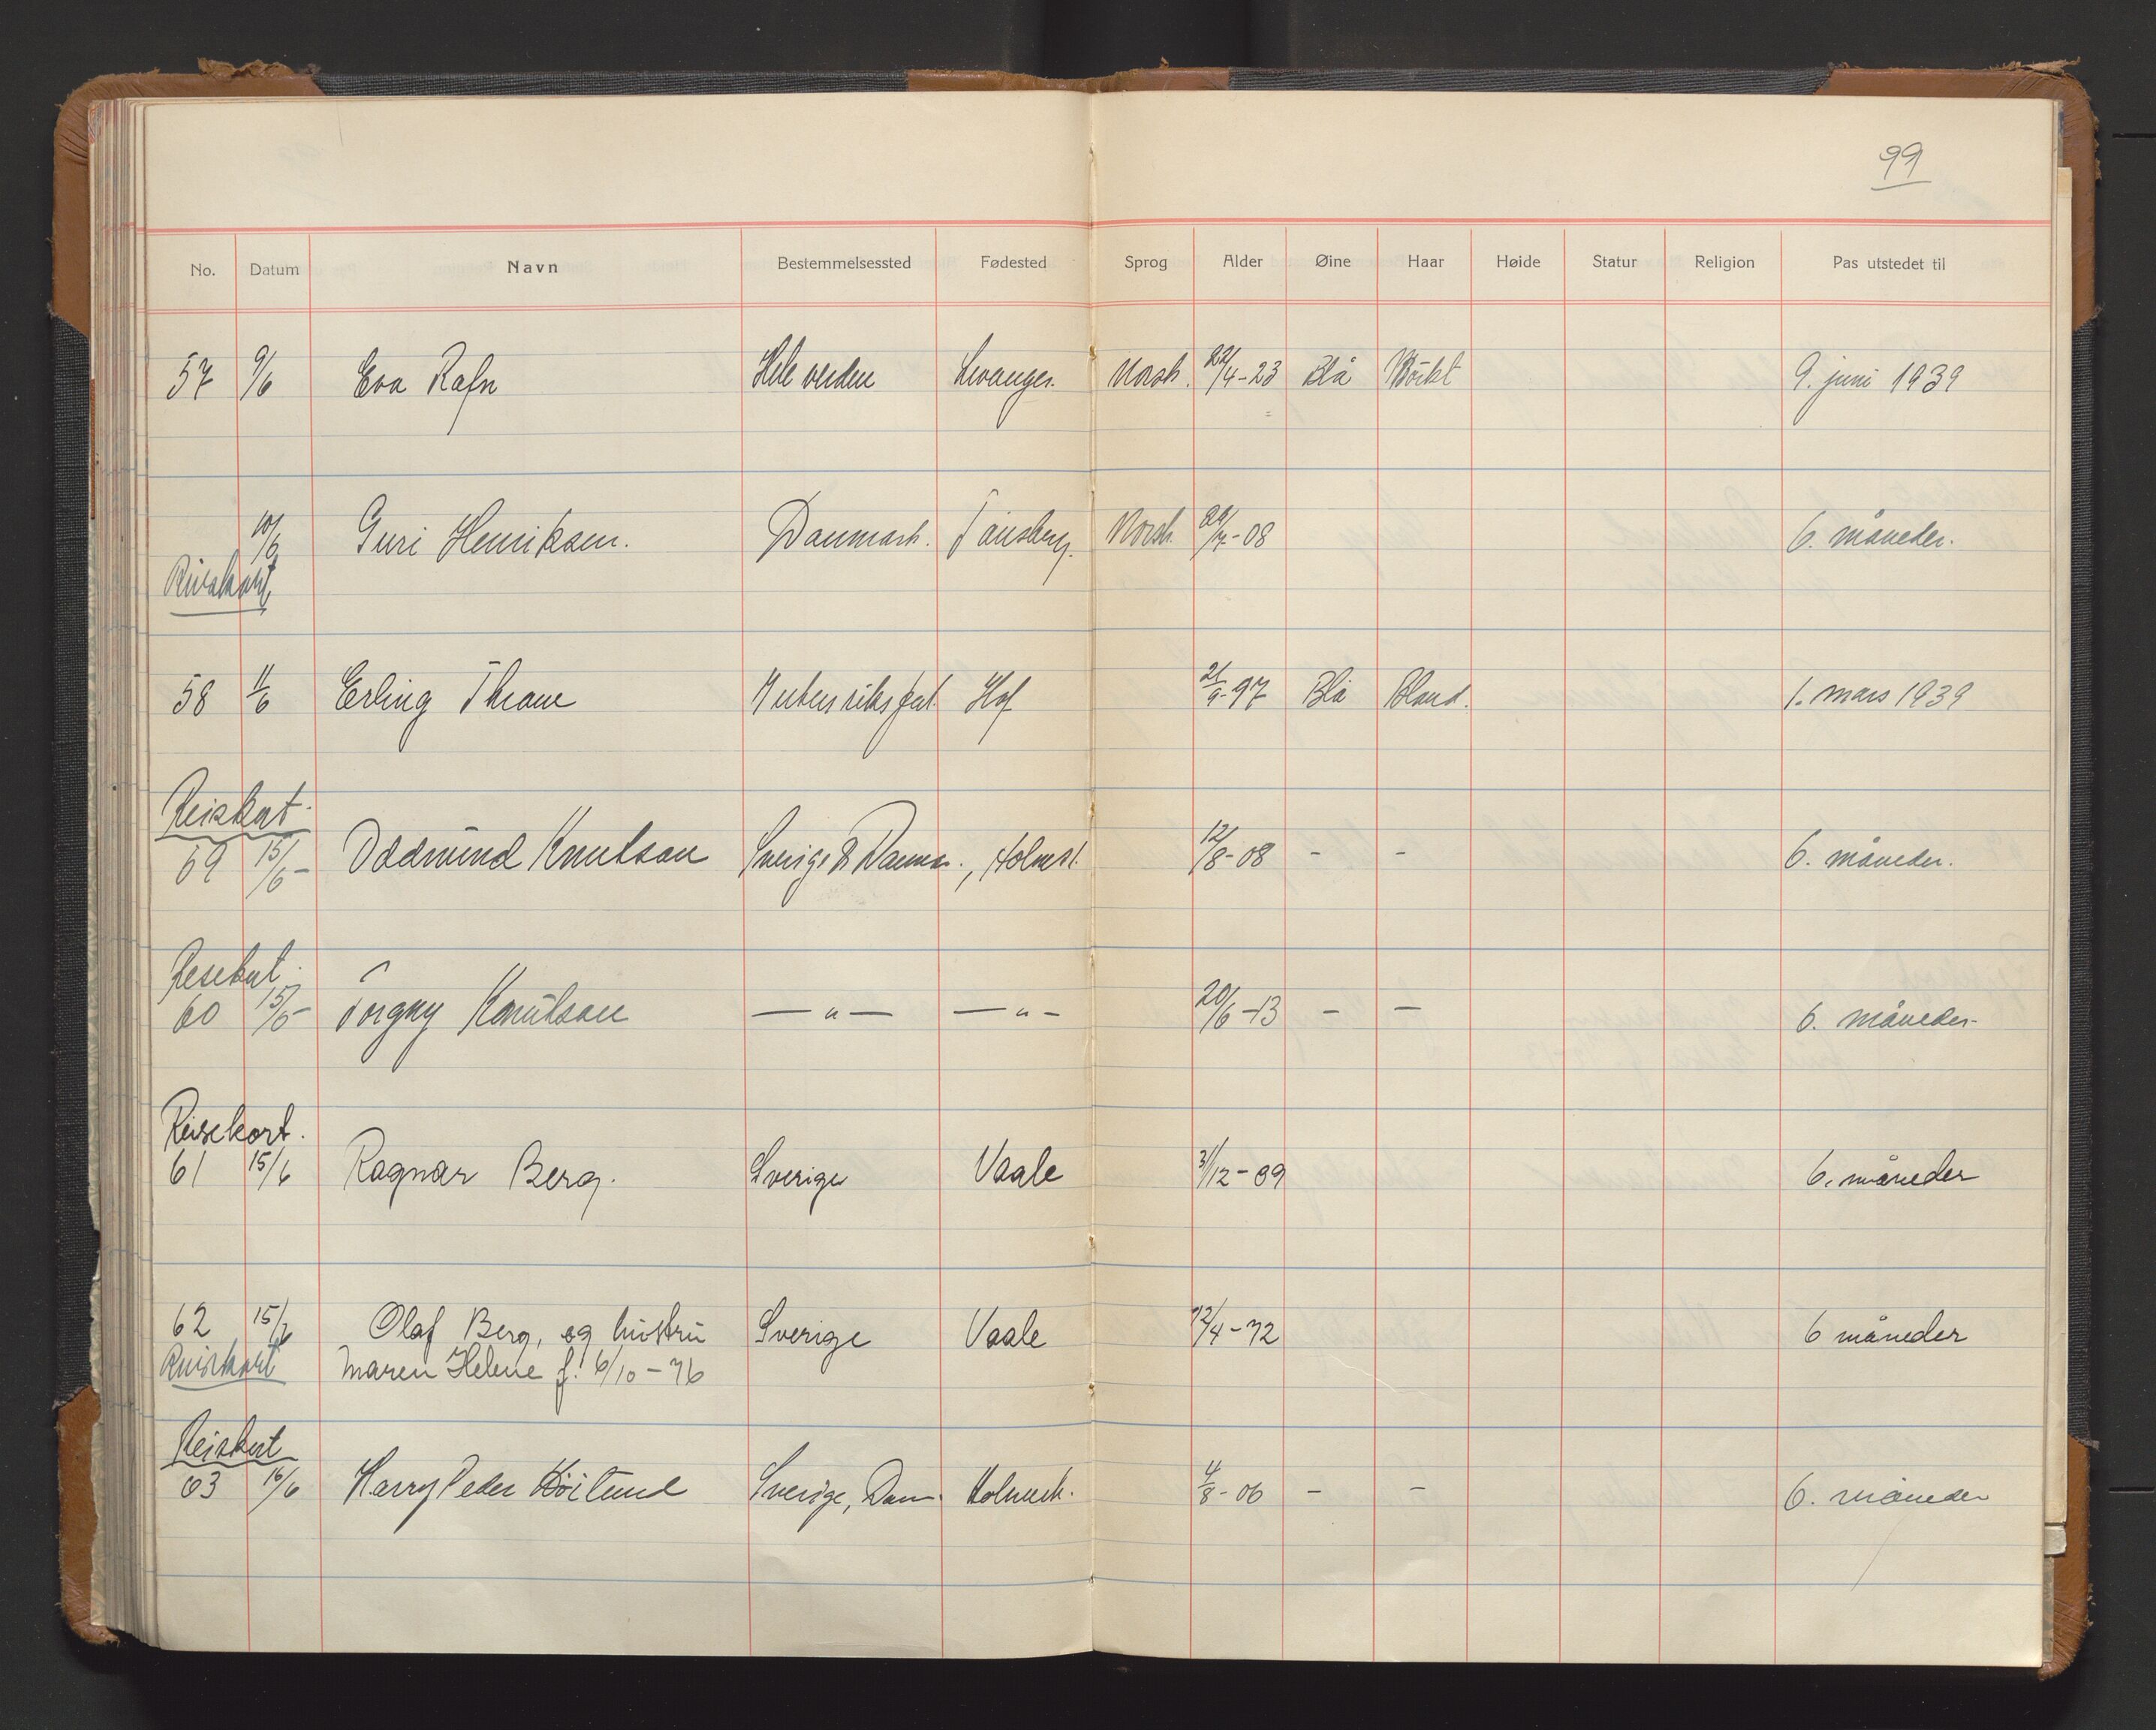 99
No. Datum Navn Bestemmelsessted Fødested Sprog Alder Øine Haar Høide Statur Religion Pas utstedet til
57 9/6 Eva Rafn Hele verden Levanger. Norsk. 22/4-23 Blå Mörkt 9. juni 1939
10/6 Guri Henriksen. Danmark. Tönsberg. Norsk. /7-08 6. måneder.
Reisekort
58 11/6 Erling Thrane Hof 21/9-97 Blå Blond. 1. mars 1939
Reisekort.
59 15/6- Oddmund Knutsen Sverige & Danm., Holmst. 12/8-08 - - 6. måneder.
Resekort.
60 15/6- Torgny Knutsen —"— —"- 20/6-13 - - 6. måneder-
Reisekort.
61 15/6 Ragnar Berg. Sverige Vaale 31/12-89 6. måneder
62 15/6 Olaf Berg, og hustru Sverige Vaale 12/4-72 6 måneder
Reisekort Maren Helene f. 6/10-76
Reisekort
63 16/6 Harry Peder Sverige, Dan. Holmest. 4/8-06 - - 6. måneder